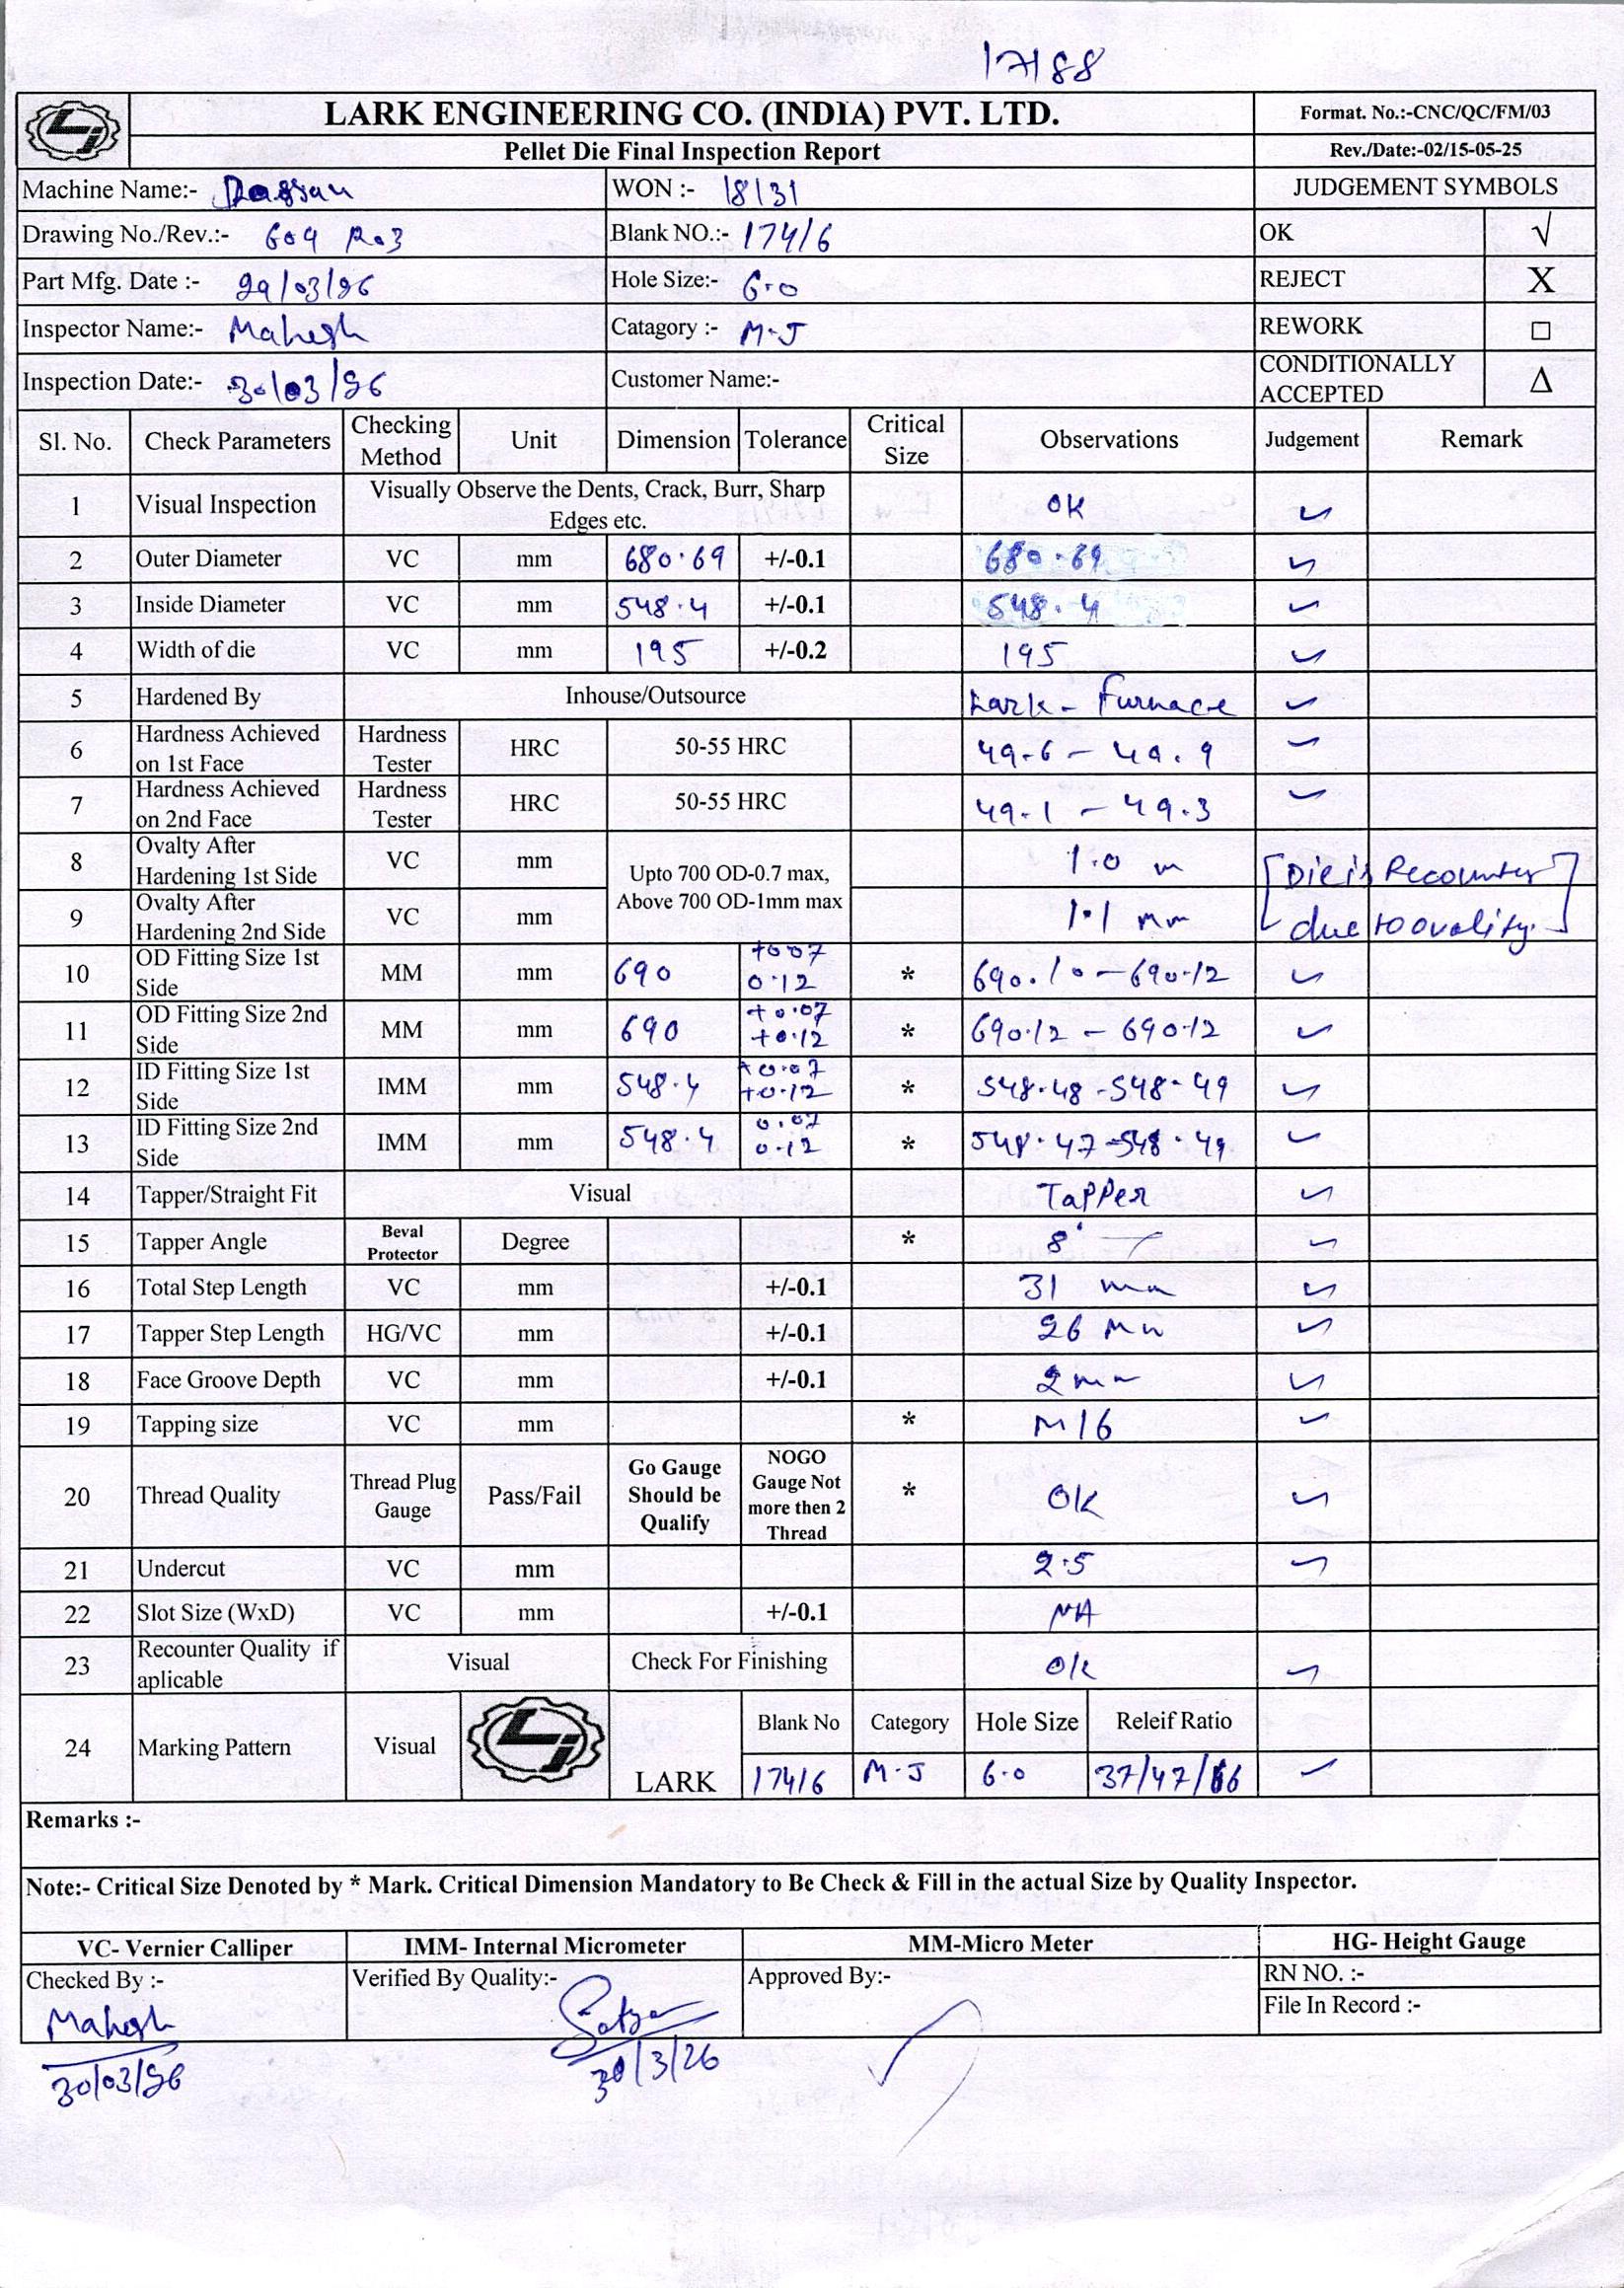 17188
LARK ENGINEERING CO. (INDIA) PVT. LTD.
Format. No.:-CNC/QC/FM/03
Pellet Die Final Inspection Report
Rev./Date:-02/15-05-25
Machine Name:-
WON :- 18131
JUDGEMENT SYMBOLS
Drawing No./Rev.:- 609 R03
Blank NO.:- 174/6
OK √
Part Mfg. Date :- 29/03/26
Hole Size:- 6.0
REJECT X
Inspector Name:- Mahesh
Catagory :- M-J
REWORK □
Inspection Date:- 30/03/26
Customer Name:-
CONDITIONALLY ACCEPTED Δ
Sl. No. Check Parameters Checking Method Unit Dimension Tolerance Critical Size Observations Judgement Remark
1 Visual Inspection Visually Observe the Dents, Crack, Burr, Sharp Edges etc. OK ✓
2 Outer Diameter VC mm 680.69 +/-0.1 680.69 ✓
3 Inside Diameter VC mm 548.4 +/-0.1 548.4 ✓
4 Width of die VC mm 195 +/-0.2 195 ✓
5 Hardened By Inhouse/Outsource Lark - Furnace ✓
6 Hardness Achieved on 1st Face Hardness Tester HRC 50-55 HRC 49.6 - 49.9 ✓
7 Hardness Achieved on 2nd Face Hardness Tester HRC 50-55 HRC 49.1 - 49.3 ✓
8 Ovalty After Hardening 1st Side VC mm Upto 700 OD-0.7 max, Above 700 OD-1mm max 1.0 m [Die is Recounter
9 Ovalty After Hardening 2nd Side VC mm 1.1 mm due to ovality.]
10 OD Fitting Size 1st Side MM mm 690 +0.07 0.12 * 690.10 - 690.12 ✓
11 OD Fitting Size 2nd Side MM mm 690 +0.07 +0.12 * 690.12 - 690.12 ✓
12 ID Fitting Size 1st Side IMM mm 548.4 +0.07 +0.12 * 548.48 - 548.49 ✓
13 ID Fitting Size 2nd Side IMM mm 548.4 0.07 0.12 * 548.47 - 548.49 ✓
14 Tapper/Straight Fit Visual Tapper ✓
15 Tapper Angle Beval Protector Degree * 8° ✓
16 Total Step Length VC mm +/-0.1 31 mm ✓
17 Tapper Step Length HG/VC mm +/-0.1 26 mm ✓
18 Face Groove Depth VC mm +/-0.1 2mm ✓
19 Tapping size VC mm * M16 ✓
20 Thread Quality Thread Plug Gauge Pass/Fail Go Gauge Should be Qualify NOGO Gauge Not more then 2 Thread * OK ✓
21 Undercut VC mm 2.5 ✓
22 Slot Size (WxD) VC mm +/-0.1 NA
23 Recounter Quality if aplicable Visual Check For Finishing OK ✓
24 Marking Pattern Visual LARK Blank No Category Hole Size Releif Ratio
174/6 M-J 6.0 37/47/66 ✓
Remarks :-
Note:- Critical Size Denoted by * Mark. Critical Dimension Mandatory to Be Check & Fill in the actual Size by Quality Inspector.
VC- Vernier Calliper IMM- Internal Micrometer MM-Micro Meter HG- Height Gauge
Checked By :- Verified By Quality:- Approved By:- RN NO. :-
File In Record :-
Mahesh
30/03/26 30/3/26